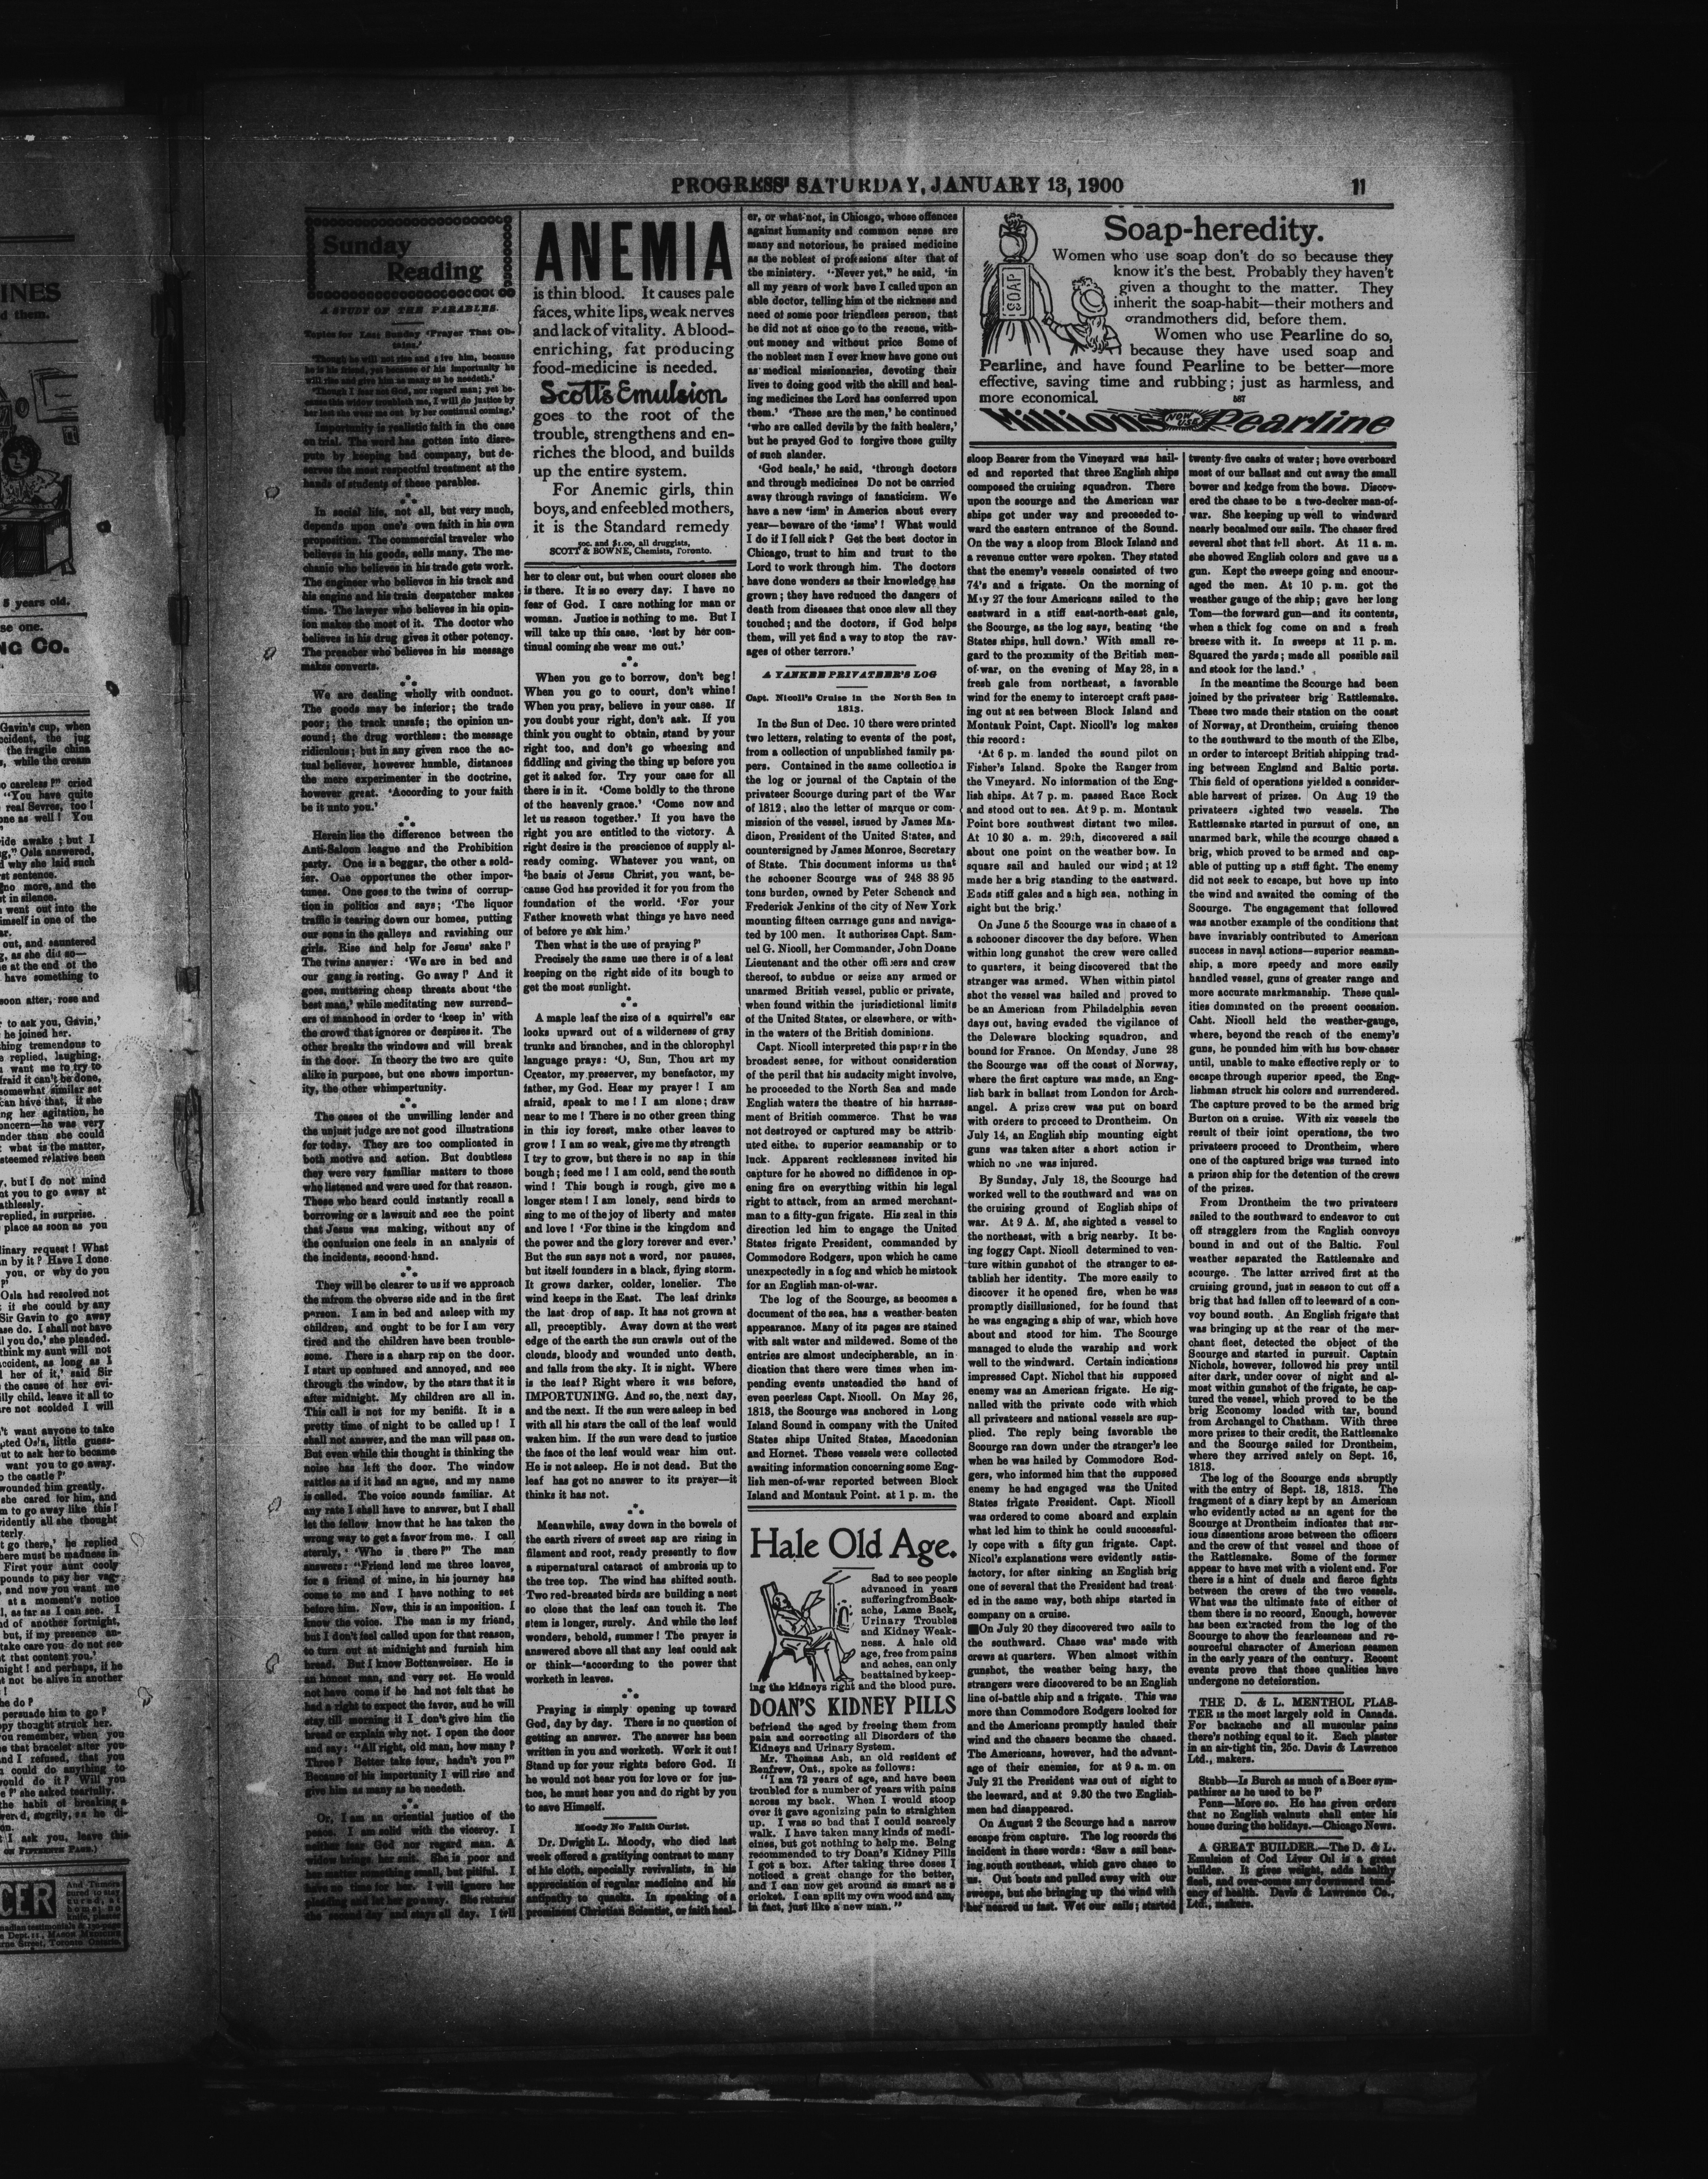 INES
d them.
5 years old.
se one.
NG CO.
Gavin's cup, when
ccident, the jug
the fragile china
s, while the cream
o careless!" cried
"You have quite
real Sevres, too!
one as well! You
ide awake; but I
g," Osla answered,
d why she laid such
st sentence.
no more, and the
t in silence.
went out into the
imself in one of the
ar.
out, and sauntered
g, as she did so—
e at the end of the
have something to
soon after, rose and
to ask you, Gavin,'
he joined her.
hing tremendous to
e replied, laughing.
want me to try to
fraid it can't be done,
somewhat similar set
can have that, if she
ng her agitation, he
oncern—he was very
nder than she could
what is the matter,
steemed relative been
y, but I do not mind
nt you to go away at
athlessly.
replied, in surprise.
place as soon as you
dinary request! What
n by it? Have I done
you, or why do you
Osla had resolved not
it she could by any
Sir Gavin to go away
ase do. I shall not have
l you do,' she pleaded.
think my aunt will not
accident, as long as I
l her of it,' said Sir
the cause of her evi-
illy child, leave it all to
are not scolded I will
't want anyone to take
pted Osla, little guess-
out to ask her to became
want you to go away.
o the castle?'
wounded him greatly.
she cared for him, and
m to go away like this!
vidently all she thought
terly.
t go there,' he replied
here must be madness in
First your aunt cooly
pounds to pay her vag-
and now you want me
at a moment's notice
l, as far as I can see. I
nd of another fortnight,
but, if my presence an-
take care you do not see
t that content you.'
night! and perhaps, if he
t not be alive in another
he do?
persuade him to go?
ppy thought struck her.
ou remember, when you
e that bracelet after you
nd I refused, that you
could do anything to
ould do it? Will you
e?' she asked tearfully.
the habit of breaking a
werd, angrily, as he di-
on.
t I ask you, leave this
ON FIFTEENTH PAGE.)
CER
And Tumors
cured to stay
cured, at
home; no
knife, plaster
PROGRESS' SATURDAY, JANUARY 13, 1900
11
Sunday
Reading
A STUDY OF THE PARABLES.
Topics for Last Sunday 'Prayer That Ob-
tains.'
'Though he will not rise and give him, because
he is his friend, yet because of his importunity he
will rise and give him as many as he needeth.'
'Though I fear not God, nor regard man; yet be-
cause this widow troubleth me, I will do justice by
her lest she wear me out by her continual coming.'
Importunity is realistic faith in the case
on trial. The word has gotten into disre-
pute by keeping bad company, but de-
serves the most respectful treatment at the
hands of students of these parables.
In social life, not all, but very much,
depends upon one's own faith in his own
proposition. The commercial traveler who
believes in his goods, sells many. The me-
chanic who believes in his trade gets work.
The engineer who believes in his track and
his engine and his train despatcher makes
time. The lawyer who believes in his opin-
ion makes the most of it. The doctor who
believes in his drug gives it other potency.
The preacher who believes in his message
makes converts.
We are dealing wholly with conduct.
The goods may be inferior; the trade
poor; the track unsafe; the opinion un-
sound; the drug worthless: the message
ridiculous; but in any given race the ac-
tual believer, however humble, distances
the mere experimenter in the doctrine,
however great. 'According to your faith
be it unto you.'
Herein lies the difference between the
Anti-Saloon league and the Prohibition
party. One is a beggar, the other a sold-
ier. One opportunes the other impor-
tunes. One goes to the twins of corrup-
tion in politics and says; 'The liquor
traffic is tearing down our homes, putting
our sons in the galleys and ravishing our
girls. Rise and help for Jesus' sake!'
The twins answer: 'We are in bed and
our gang is resting. Go away!' And it
goes, muttering cheap threats about 'the
best man,' while meditating new surrend-
ers of manhood in order to 'keep in' with
the crowd that ignores or despises it. The
other breaks the windows and will break
in the door. In theory the two are quite
alike in purpose, but one shows importun-
ity, the other whimpertunity.
The cases of the unwilling lender and
the unjust judge are not good illustrations
for today. They are too complicated in
both motive and action. But doubtless
they were very familiar matters to those
who listened and were used for that reason.
These who heard could instantly recall a
borrowing or a lawsuit and see the point
that Jesus was making, without any of
the confusion one feels in an analysis of
the incidents, second-hand.
They will be clearer to us if we approach
the mfrom the obverse side and in the first
person. I am in bed and asleep with my
children, and ought to be for I am very
tired and the children have been trouble-
some. There is a sharp rap on the door.
I start up confused and annoyed, and see
through the window, by the stars that it is
after midnight. My children are all in.
This call is not for my benifit. It is a
pretty time of night to be called up! I
shall not answer, and the man will pass on.
But even while this thought is thinking the
noise has left the door. The window
rattles as if it had an ague, and my name
is called. The voice sounds familiar. At
any rate I shall have to answer, but I shall
let the fellow know that he has taken the
wrong way to get a favor from me. I call
sternly, 'Who is there?" The man
answers: "Friend lend me three loaves,
for a friend of mine, in his journey has
come to me and I have nothing to set
before him. Now, this is an imposition. I
know the voice. The man is my friend,
but I don't feel called upon for that reason,
to turn out at midnight and furnish him
bread. But I know Bottenweiser. He is
an honest man, and very set. He would
not have come if he had not felt that he
had a right to expect the favor, and he will
stay till morning if I don't give him the
bread or explain why not. I open the door
and say: "All right, old man, how many?
Three? Better take four, hadn't you?"
Because of his importunity I will rise and
give him as many as he needeth.
Or, I am an oriential justice of the
peace. I am solid with the viceroy. I
neither fear God nor regard man. A
widow brings her suit. She is poor and
the matter something small, but pitiful. I
have no time for her. I will ignore her
pleading and let her go away. She returns
the second day and stays all day. I tell
ANEMIA
is thin blood. It causes pale
faces, white lips, weak nerves
and lack of vitality. A blood-
enriching, fat producing
food-medicine is needed.
Scott's Emulsion
goes to the root of the
trouble, strengthens and en-
riches the blood, and builds
up the entire system.
For Anemic girls, thin
boys, and enfeebled mothers,
it is the Standard remedy
50c. and $1.00, all druggists,
SCOTT & BOWNE, Chemists, Toronto.
her to clear out, but when court closes she
is there. It is so every day. I have no
fear of God. I care nothing for man or
woman. Justice is nothing to me. But I
will take up this case, 'lest by her con-
tinual coming she wear me out.'
When you go to borrow, don't beg!
When you go to court, don't whine!
When you pray, believe in your case. If
you doubt your right, don't ask. If you
think you ought to obtain, stand by your
right too, and don't go wheezing and
fiddling and giving the thing up before you
get it asked for. Try your case for all
there is in it. 'Come boldly to the throne
of the heavenly grace.' 'Come now and
let us reason together.' If you have the
right you are entitled to the victory. A
right desire is the prescience of supply al-
ready coming. Whatever you want, on
the basis of Jesus Christ, you want, be-
cause God has provided it for you from the
foundation of the world. 'For your
Father knoweth what things ye have need
of before ye ask him.'
Then what is the use of praying?'
Precisely the same use there is of a leat
keeping on the right side of its bough to
get the most sunlight.
A maple leaf the size of a squirrel's ear
looks upward out of a wilderness of gray
trunks and branches, and in the chlorophyl
language prays: 'O, Sun, Thou art my
Creator, my preserver, my benefactor, my
father, my God. Hear my prayer! I am
afraid, speak to me! I am alone; draw
near to me! There is no other green thing
in this icy forest, make other leaves to
grow! I am so weak, give me thy strength
I try to grow, but there is no sap in this
bough; feed me! I am cold, send the south
wind! This bough is rough, give me a
longer stem! I am lonely, send birds to
sing to me of the joy of liberty and mates
and love! 'For thine is the kingdom and
the power and the glory forever and ever.'
But the sun says not a word, nor pauses,
but itself founders in a black, flying storm.
It grows darker, colder, lonelier. The
wind keeps in the East. The leaf drinks
the last drop of sap. It has not grown at
all, preceptibly. Away down at the west
edge of the earth the sun crawls out of the
clouds, bloody and wounded unto death,
and falls from the sky. It is night. Where
is the leaf? Right where it was before,
IMPORTUNING. And so, the next day,
and the next. If the sun were asleep in bed
with all his stars the call of the leaf would
waken him. If the sun were dead to justice
the face of the leaf would wear him out.
He is not asleep. He is not dead. But the
leaf has got no answer to its prayer—it
thinks it has not.
Meanwhile, away down in the bowels of
the earth rivers of sweet sap are rising in
filament and root, ready presently to flow
a supernatural cataract of ambrosia up to
the tree top. The wind has shifted south.
Two red-breasted birds are building a nest
so close that the leaf can touch it. The
stem is longer, surely. And while the leaf
wonders, behold, summer! The prayer is
answered above all that any leaf could ask
or think—'according to the power that
worketh in leaves.
Praying is simply opening up toward
God, day by day. There is no question of
getting an answer. The answer has been
written in you and worketh. Work it out!
Stand up for your rights before God. If
he would not hear you for love or for jus-
tice, he must hear you and do right by you
to save Himself.
Moody No Faith Curist.
Dr. Dwight L. Moody, who died last
week offered a gratifying contrast to many
of his cloth, especially revivalists, in his
appreciation of regular medicine and his
antipathy to quacks. In speaking of a
prominent Christian Scientist, or faith heal-
er, or what not, in Chicago, whose offences
against humanity and common sense are
many and notorious, he praised medicine
as the noblest of professions after that of
the ministery. "Never yet," he said, 'in
all my years of work have I called upon an
able doctor, telling him of the sickness and
need of some poor friendless person, that
he did not at once go to the rescue, with-
out money and without price Some of
the noblest men I ever knew have gone out
as medical missionaries, devoting their
lives to doing good with the skill and heal-
ing medicines the Lord has conferred upon
them.' 'These are the men,' he continued
'who are called devils by the faith healers,'
but he prayed God to forgive those guilty
of such slander.
'God heals,' he said, 'through doctors
and through medicines Do not be carried
away through ravings of fanaticism. We
have a new 'ism' in America about every
year—beware of the 'isms'! What would
I do if I fell sick? Get the best doctor in
Chicago, trust to him and trust to the
Lord to work through him. The doctors
have done wonders as their knowledge has
grown; they have reduced the dangers of
death from diseases that once slew all they
touched; and the doctors, if God helps
them, will yet find a way to stop the rav-
ages of other terrors.'
A YANKEE PRIVATEER'S LOG
Capt. Nicoll's Cruise in the North Sea in
1813.
In the Sun of Dec. 10 there were printed
two letters, relating to events of the post,
from a collection of unpublished family pa-
pers. Contained in the same collection is
the log or journal of the Captain of the
privateer Scourge during part of the War
of 1812; also the letter of marque or com-
mission of the vessel, issued by James Ma-
dison, President of the United States, and
countersigned by James Monroe, Secretary
of State. This document informs us that
the schooner Scourge was of 248 38 95
tons burden, owned by Peter Schenck and
Frederick Jenkins of the city of New York
mounting fifteen carriage guns and naviga-
ted by 100 men. It authorizes Capt. Sam-
uel G. Nicoll, her Commander, John Doane
Lieutenant and the other officers and crew
thereof, to subdue or seize any armed or
unarmed British vessel, public or private,
when found within the jurisdictional limits
of the United States, or elsewhere, or with-
in the waters of the British dominions.
Capt. Nicoll interpreted this paper in the
broadest sense, for without consideration
of the peril that his audacity might involve,
he proceeded to the North Sea and made
English waters the theatre of his harrass-
ment of British commerce. That he was
not destroyed or captured may be attrib-
uted either to superior seamanship or to
luck. Apparent recklessness invited his
capture for he showed no diffidence in op-
ening fire on everything within his legal
right to attack, from an armed merchant-
man to a fifty-gun frigate. His zeal in this
direction led him to engage the United
States frigate President, commanded by
Commodore Rodgers, upon which he came
unexpectedly in a fog and which he mistook
for an English man-of-war.
The log of the Scourge, as becomes a
document of the sea, has a weather-beaten
appearance. Many of its pages are stained
with salt water and mildewed. Some of the
entries are almost undecipherable, an in-
dication that there were times when im-
pending events unsteadied the hand of
even peerless Capt. Nicoll. On May 26,
1813, the Scourge was anchored in Long
Island Sound in company with the United
States ships United States, Macedonian
and Hornet. These vessels were collected
awaiting information concerning some Eng-
lish men-of-war reported between Block
Island and Montauk Point. at 1 p. m. the
Hale Old Age.
Sad to see people
advanced in years
suffering from Back-
ache, Lame Back,
Urinary Troubles
and Kidney Weak-
ness. A hale old
age, free from pains
and aches, can only
be attained by keep-
ing the kidneys right and the blood pure.
DOAN'S KIDNEY PILLS
befriend the aged by freeing them from
pain and correcting all Disorders of the
Kidneys and Urinary System.
Mr. Thomas Ash, an old resident of
Renfrew, Ont., spoke as follows:
"I am 72 years of age, and have been
troubled for a number of years with pains
across my back. When I would stoop
over it gave agonizing pain to straighten
up. I was so bad that I could scarcely
walk. I have taken many kinds of medi-
cines, but got nothing to help me. Being
recommended to try Doan's Kidney Pills
I got a box. After taking three doses I
noticed a great change for the better,
and I can now get around as smart as a
cricket. I can split my own wood and am,
in fact, just like a new man."
SOAP
Soap-heredity.
Women who use soap don't do so because they
know it's the best. Probably they haven't
given a thought to the matter. They
inherit the soap-habit—their mothers and
grandmothers did, before them.
Women who use Pearline do so,
because they have used soap and
Pearline, and have found Pearline to be better—more
effective, saving time and rubbing; just as harmless, and
more economical. 587
Millions NOW USE Pearline
sloop Bearer from the Vineyard was hail-
ed and reported that three English ships
composed the cruising squadron. There
upon the scourge and the American war
ships got under way and proceeded to-
ward the eastern entrance of the Sound.
On the way a sloop from Block Island and
a revenue cutter were spoken. They stated
that the enemy's vessels consisted of two
74's and a frigate. On the morning of
May 27 the four Americans sailed to the
eastward in a stiff east-north-east gale,
the Scourge, as the log says, beating 'the
States ships, hull down.' With small re-
gard to the proximity of the British men-
of-war, on the evening of May 28, in a
fresh gale from northeast, a favorable
wind for the enemy to intercept craft pass-
ing out at sea between Block Island and
Montauk Point, Capt. Nicoll's log makes
this record:
'At 6 p. m. landed the sound pilot on
Fisher's Island. Spoke the Ranger from
the Vineyard. No information of the Eng-
lish ships. At 7 p. m. passed Race Rock
and stood out to sea. At 9 p. m. Montauk
Point bore southwest distant two miles.
At 10 30 a. m. 29th, discovered a sail
about one point on the weather bow. In
square sail and hauled our wind; at 12
made her a brig standing to the eastward.
Ends stiff gales and a high sea, nothing in
sight but the brig.'
On June 5 the Scourge was in chase of a
a schooner discover the day before. When
within long gunshot the crew were called
to quarters, it being discovered that the
stranger was armed. When within pistol
shot the vessel was hailed and proved to
be an American from Philadelphia seven
days out, having evaded the vigilance of
the Deleware blocking squadron, and
bound for France. On Monday, June 28
the Scourge was off the coast of Norway,
where the first capture was made, an Eng-
lish bark in ballast from London for Arch-
angel. A prize crew was put on board
with orders to proceed to Drontheim. On
July 14, an English ship mounting eight
guns was taken after a short action ir
which no one was injured.
By Sunday, July 18, the Scourge had
worked well to the southward and was on
the cruising ground of English ships of
war. At 9 A. M, she sighted a vessel to
the northeast, with a brig nearby. It be-
ing foggy Capt. Nicoll determined to ven-
ture within gunshot of the stranger to es-
tablish her identity. The more easily to
discover it he opened fire, when he was
promptly disillusioned, for he found that
he was engaging a ship of war, which hove
about and stood for him. The Scourge
managed to elude the warship and work
well to the windward. Certain indications
impressed Capt. Nichol that his supposed
enemy was an American frigate. He sig-
nalled with the private code with which
all privateers and national vessels are sup-
plied. The reply being favorable the
Scourge ran down under the stranger's lee
when he was hailed by Commodore Rod-
gers, who informed him that the supposed
enemy he had engaged was the United
States frigate President. Capt. Nicoll
was ordered to come aboard and explain
what led him to think he could successful-
ly cope with a fifty gun frigate. Capt.
Nicol's explanations were evidently satis-
factory, for after sinking an English brig
one of several that the President had treat
ed in the same way, both ships started in
company on a cruise.
On July 20 they discovered two sails to
the southward. Chase was' made with
crews at quarters. When almost within
gunshot, the weather being hazy, the
strangers were discovered to be an English
line-of-battle ship and a frigate. This was
more than Commodore Rodgers looked for
and the Americans promptly hauled their
wind and the chasers became the chased.
The Americans, however, had the advant-
age of their enemies, for at 9 a. m. on
July 21 the President was out of sight to
the leeward, and at 9.30 the two English-
men had disappeared.
On August 2 the Scourge had a narrow
escape from capture. The log records the
incident in these words: 'Saw a sail bear-
ing south southeast, which gave chase to
us. Out boats and pulled away with our
sweeps, but she bringing up the wind with
her neared us fast. Wet our sails; started
twenty-five casks of water; hove overboard
most of our ballast and cut away the small
bower and kedge from the bows. Discov-
ered the chase to be a two-decker man-of-
war. She keeping up well to windward
nearly becalmed our sails. The chaser fired
several shot that fell short. At 11 a. m.
she showed English colors and gave us a
gun. Kept the sweeps going and encour-
aged the men. At 10 p. m. got the
weather gauge of the ship; gave her long
Tom—the forward gun—and its contents,
when a thick fog come on and a fresh
breeze with it. In sweeps at 11 p. m.
Squared the yards; made all possible sail
and stook for the land.'
In the meantime the Scourge had been
joined by the privateer brig Rattlesnake.
These two made their station on the coast
of Norway, at Drontheim, cruising thence
to the southward to the mouth of the Elbe,
in order to intercept British shipping trad-
ing between England and Baltic ports.
This field of operations yielded a consider-
able harvest of prizes. On Aug 19 the
privateers sighted two vessels. The
Rattlesnake started in pursuit of one, an
unarmed bark, while the scourge chased a
brig, which proved to be armed and cap-
able of putting up a stiff fight. The enemy
did not seek to escape, but hove up into
the wind and awaited the coming of the
Scourge. The engagement that followed
was another example of the conditions that
have invariably contributed to American
success in naval actions—superior seaman-
ship, a more speedy and more easily
handled vessel, guns of greater range and
more accurate markmanship. These qual-
ities dominated on the present occasion.
Caht. Nicoll held the weather-gauge,
where, beyond the reach of the enemy's
guns, he pounded him with his bow-chaser
until, unable to make effective reply or to
escape through superior speed, the Eng-
lishman struck his colors and surrendered.
The capture proved to be the armed brig
Burton on a cruise. With six vessels the
result of their joint operations, the two
privateers proceeded to Drontheim, where
one of the captured brigs was turned into
a prison ship for the detention of the crews
of the prizes.
From Drontheim the two privateers
sailed to the southward to endeavor to cut
off stragglers from the English convoys
bound in and out of the Baltic. Foul
weather separated the Rattlesnake and
scourge. The latter arrived first at the
cruising ground, just in season to cut off a
brig that had fallen off to leeward of a con-
voy bound south. An English frigate that
was bringing up at the rear of the mer-
chant fleet, detected the object of the
Scourge and started in pursuit. Captain
Nichols, however, followed his prey until
after dark, under cover of night and al-
most within gunshot of the frigate, he cap-
tured the vessel, which proved to be the
brig Economy loaded with tar, bound
from Archangel to Chatham. With three
more prizes to their credit, the Rattlesnake
and the Scourge sailed for Drontheim,
where they arrived safely on Sept. 16,
1813.
The log of the Scourge ends abruptly
with the entry of Sept. 18, 1813. The
fragment of a diary kept by an American
who evidently acted as an agent for the
Scourge at Drontheim indicates that ser-
ious dissentions arose between the officers
and the crew of that vessel and those of
the Rattlesnake. Some of the former
appear to have met with a violent end. For
there is a hint of duels and fierce fights
between the crews of the two vessels.
What was the ultimate fate of either of
them there is no record, Enough, however
has been extracted from the log of the
Scourge to show the fearlessness and re-
sourceful character of American seamen
in the early years of the century. Recent
events prove that those qualities have
undergone no deteioration.
THE D. & L. MENTHOL PLAS-
TER is the most largely sold in Canada.
For backache and all muscular pains
there's nothing equal to it. Each plaster
in an air-tight tin, 25c. Davis & Lawrence
Ltd., makers.
Stubb—Is Burch as much of a Boer sym-
pathiser as he used to be?'
Penn—More so. He has given orders
that no English walnuts shall enter his
house during the holidays.—Chicago News.
A GREAT BUILDER.—The D. & L.
Emulsion of Cod Liver Oil is a great
builder. It gives weight, adds healthy
flesh, and over-comes any downward tend-
ency of health. Davis & Lawrence Co.,
Ltd., makers.